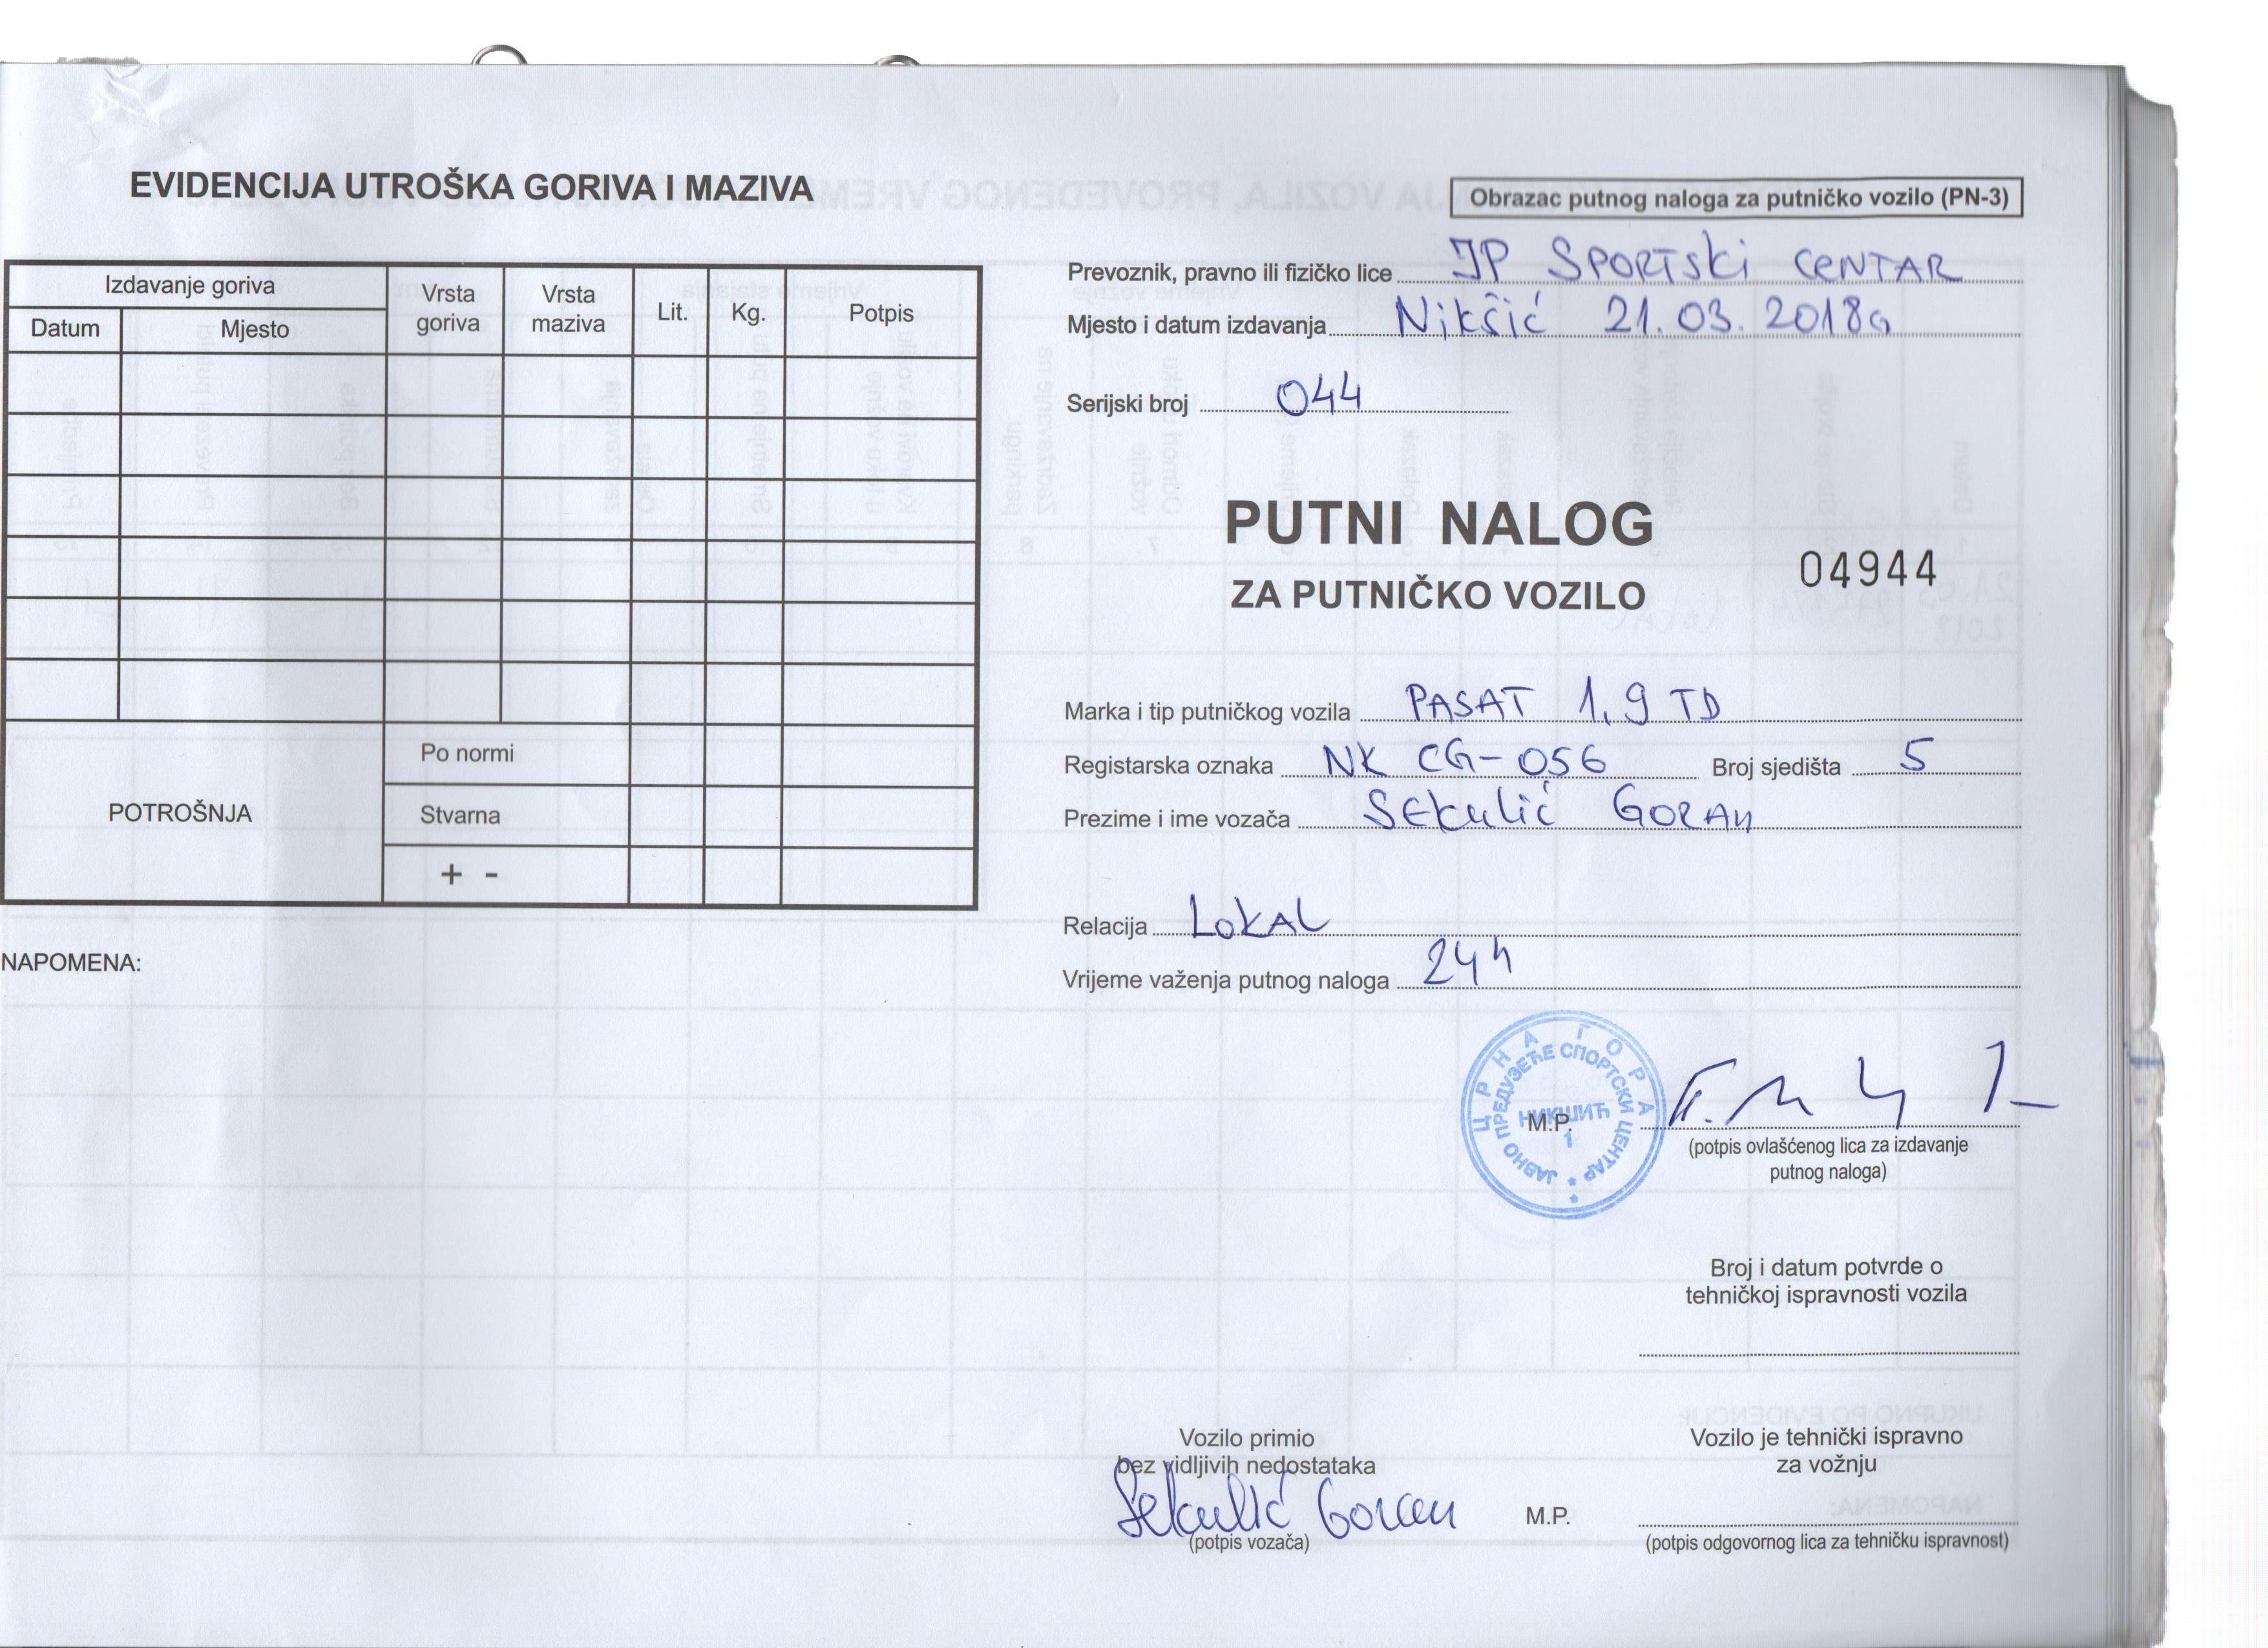 EVIDENCIJA UTROŠKA GORIVA I MAZIVA
Izdavanje goriva
Datum
Mjesto
Vrsta
goriva
Vrsta
maziva
Lit.
Kg.
Potpis
POTROŠNJA
Po normi
Stvarna
+ -
NAPOMENA:
Obrazac putnog naloga za putničko vozilo (PN-3)
Prevoznik, pravno ili fizičko lice JP SPORTSKI CENTAR
Mjesto i datum izdavanja Nikšić 21.03.2018g
Serijski broj 044
PUTNI NALOG
ZA PUTNIČKO VOZILO
04944
Marka i tip putničkog vozila PASAT 1,9 TD
Registarska oznaka NK CG-056 Broj sjedišta 5
Prezime i ime vozača SEKULIĆ GORAN
Relacija LOKAL
Vrijeme važenja putnog naloga 24h
ЦРНА ГОРА
ЈАВНО ПРЕДУЗЕЋЕ СПОРТСКИ ЦЕНТАР
НИКШИЋ
1
M.P.
(potpis ovlašćenog lica za izdavanje
putnog naloga)
Broj i datum potvrde o
tehničkoj ispravnosti vozila
Vozilo primio
bez vidljivih nedostataka
Sekulić Goran
(potpis vozača)
M.P.
Vozilo je tehnički ispravno
za vožnju
(potpis odgovornog lica za tehničku ispravnost)